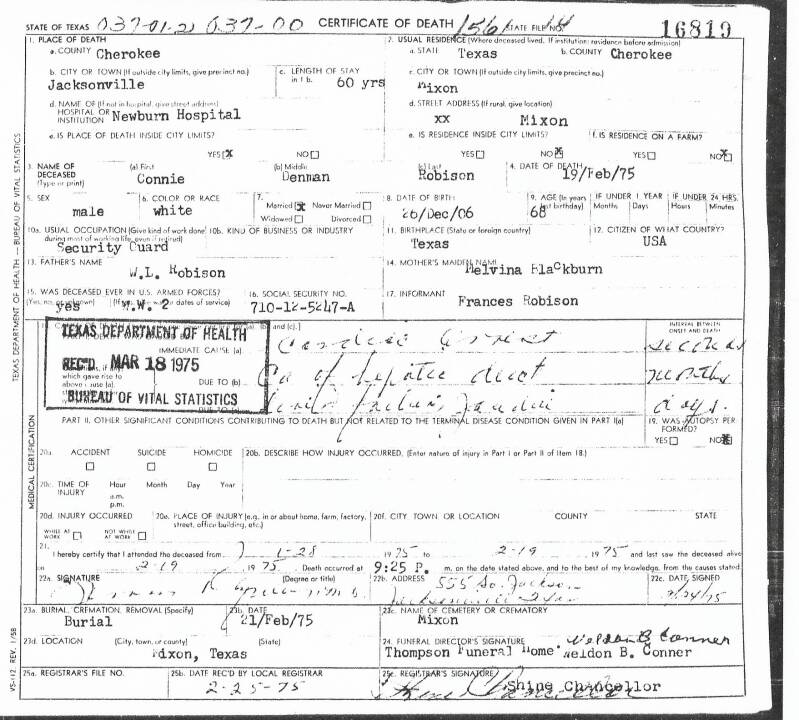 STATE OF TEXAS 037-01-2) 037-00 CERTIFICATE OF DEATH 156 STATE FILE NO. 16819
1. PLACE OF DEATH 2. USUAL RESIDENCE (Where deceased lived. If institution: residence before admission)
a. COUNTY Cherokee a. STATE Texas b. COUNTY Cherokee
b. CITY OR TOWN (If outside city limits, give precinct no.) c. LENGTH OF STAY in 1 b. c. CITY OR TOWN (If outside city limits, give precinct no.)
Jacksonville 60 yrs Mixon
d. NAME OF (If not in hospital, give street address) HOSPITAL OR INSTITUTION Newburn Hospital d. STREET ADDRESS (If rural, give location)
xx Mixon
e. IS PLACE OF DEATH INSIDE CITY LIMITS? e. IS RESIDENCE INSIDE CITY LIMITS? f. IS RESIDENCE ON A FARM?
YES X NO YES NO X YES NO X
3. NAME OF DECEASED (Type or print) (a) First (b) Middle (c) Last 4. DATE OF DEATH
Connie Denman Robison 19/Feb/75
5. SEX 6. COLOR OR RACE 7. Married X Never Married 8. DATE OF BIRTH 9. AGE (In years last birthday) IF UNDER 1 YEAR IF UNDER 24 HRS.
male white Widowed Divorced 26/Dec/06 68 Months Days Hours Minutes
10a. USUAL OCCUPATION (Give kind of work done during most of working life, even if retired) 10b. KIND OF BUSINESS OR INDUSTRY 11. BIRTHPLACE (State or foreign country) 12. CITIZEN OF WHAT COUNTRY?
Security Guard Texas USA
13. FATHER'S NAME 14. MOTHER'S MAIDEN NAME
W.L. Robison Melvina Blackburn
15. WAS DECEASED EVER IN U.S. ARMED FORCES? 16. SOCIAL SECURITY NO. 17. INFORMANT
(Yes, no, or unknown) (If yes, give war or dates of service)
yes W.W. 2 710-12-5247-A Frances Robison
TEXAS DEPARTMENT OF HEALTH
REC'D MAR 18 1975
BUREAU OF VITAL STATISTICS
IMMEDIATE CAUSE (a) Cardiac Arrest INTERVAL BETWEEN ONSET AND DEATH seconds
which gave rise to above cause (a). DUE TO (b) Ca of hepatic duct months
DUE TO (c) days.
PART II. OTHER SIGNIFICANT CONDITIONS CONTRIBUTING TO DEATH BUT NOT RELATED TO THE TERMINAL DISEASE CONDITION GIVEN IN PART I(a) 19. WAS AUTOPSY PERFORMED?
YES NO X
20a. ACCIDENT SUICIDE HOMICIDE 20b. DESCRIBE HOW INJURY OCCURRED. (Enter nature of injury in Part I or Part II of Item 18.)
20c. TIME OF INJURY Hour a.m. p.m. Month Day Year
20d. INJURY OCCURRED 20e. PLACE OF INJURY (e.g. in or about home, farm, factory, street, office building, etc.) 20f. CITY TOWN OR LOCATION COUNTY STATE
WHILE AT WORK NOT WHILE AT WORK
21. I hereby certify that I attended the deceased from 1-28 1975 to 2-19 1975 and last saw the deceased alive
on 2-19 1975 Death occurred at 9:25 P. m. on the date stated above, and to the best of my knowledge, from the causes stated.
22a. SIGNATURE (Degree or title) 22b. ADDRESS 555 So. Jackson 22c. DATE SIGNED
Jacksonville 2/24/75
23a. BURIAL, CREMATION, REMOVAL (Specify) 23b. DATE 23c. NAME OF CEMETERY OR CREMATORY
Burial 21/Feb/75 Mixon
23d. LOCATION (City, town, or county) (State) 24. FUNERAL DIRECTOR'S SIGNATURE Weldon B Conner
Mixon, Texas Thompson Funeral Home Weldon B. Conner
25a. REGISTRAR'S FILE NO. 25b. DATE REC'D BY LOCAL REGISTRAR 25c. REGISTRAR'S SIGNATURE
2-25-75 Shine Chancellor
TEXAS DEPARTMENT OF HEALTH — BUREAU OF VITAL STATISTICS
MEDICAL CERTIFICATION
VS-112 REV. 1/58